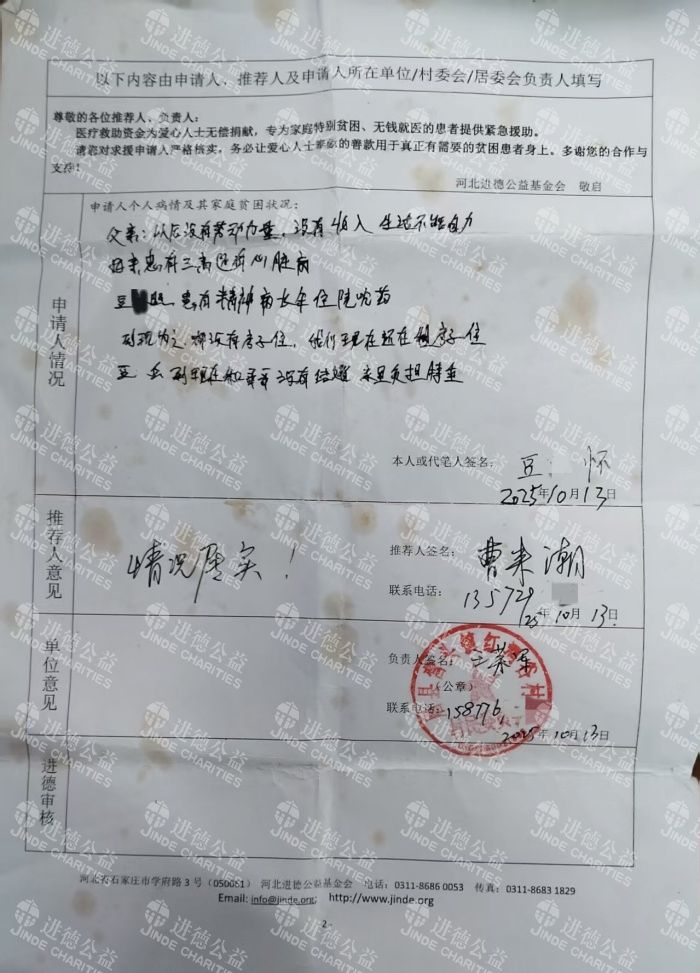 以下内容由申请人、推荐人及申请人所在单位/村委会/居委会负责人填写
尊敬的各位推荐人、负责人:
医疗救助资金为爱心人士无偿捐献,专为家庭特别贫困、无钱就医的患者提供紧急援助。
请您对求援申请人严格核实,务必让爱心人士奉献的善款用于真正有需要的贫困患者身上。多谢您的合作与
支持!
河北进德公益基金会 敬启
申请人情况
申请人个人病情及其家庭贫困状况:
父亲:以后没有劳动力量,没有收入 生活不能自力
母亲患有三高还有心脏病
豆 患有精神病长年住院吃药
到现为之 都没有房子住,他们现在还在租房子住
豆 到现在和哥哥没有结婚 家里负担特重
本人或代笔人签名: 豆 怀
2025年10月13日
推荐人意见
情况属实!
推荐人签名: 曹来潮
联系电话: 135729
25年10月13日
单位意见
负责人签名:
(公章)
联系电话: 158776
2025年10月13日
进德审核
河北省石家庄市学府路 3 号(050061) 河北进德公益基金会 电话:0311-8686 0053 传真:0311-8683 1829
Email: info@jinde.org; http://www.jinde.org
2
进德公益
JINDE CHARITIES